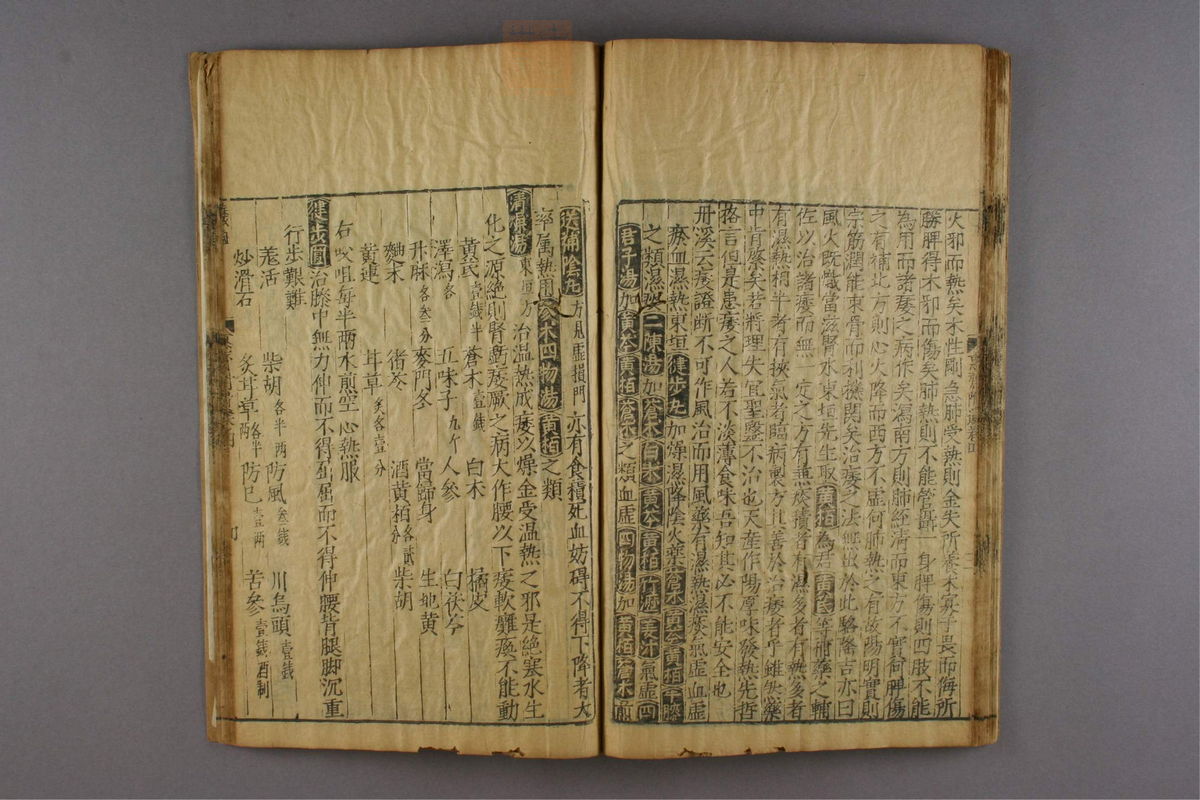 火邪而熱矣木性剛急肺受熱則金失所養木寡于畏而侮所
勝脾得木邪而傷矣肺熱則不能管攝一身脾傷則四肢不能
為用而諸痿之病作矣瀉南方則肺經清而東方不實何脾傷
之有補北方則心火降而西方不虛何肺熱之有故陽明實則
宗筋潤能束骨而利機関矣治痿之法無出於此駱隆吉亦曰
風火既熾當滋腎水東垣先生取黃栢為君黃芪等補藥之輔
佐以治諸痿而無一定之方有無痰積者有濕多者有熱多者
有濕熱相半者有挾氣者臨病製方其善於治痿者乎雖失藥
中肯綮矣若將理失宜聖醫不治也天産作陽厚味發熱先哲
格言但是患痿之人若不淡薄食味吾知其必不能安全也
丹溪云痿證断不可作風治而用風藥有濕熱濕痰氣虛血虛
瘀血濕熱東垣健步丸加燥濕降陰火藥蒼术黃芩黃栢牛膝
之類濕痰二陳湯加蒼术白术黃芩黃栢竹瀝姜汁氣虛四
君子湯加黃芩黃栢蒼术之類血虛四物湯加黃栢蒼术煎
送補陰丸方見虛損門亦有食積死血妨碍不得下降者大
率属熱用參术四物湯黃栢之類
清燥湯東垣方治温熱成痿以燥金受温熱之邪是絶寒水生
化之源絶則腎虧痿厥之病大作腰以下痿軟癱瘓不能動
黃芪壹錢半 蒼术壹錢 白术 橘皮
澤瀉各 五味子九个 人參 白茯苓
升麻各叁分 麥門冬 當歸身 生地黃
麯末 猪苓 酒黃栢各貳分 柴胡
黃連 甘草炙各壹分
右㕮咀每半兩水煎空心熱服
健步圓治膝中無力伸而不得屈屈而不得伸腰背腿脚沉重
行步艱難
羌活 柴胡各半兩 防風叁錢 川烏頭壹錢
炒滑石 炙甘草各半兩 防已壹兩 苦參壹錢酒制